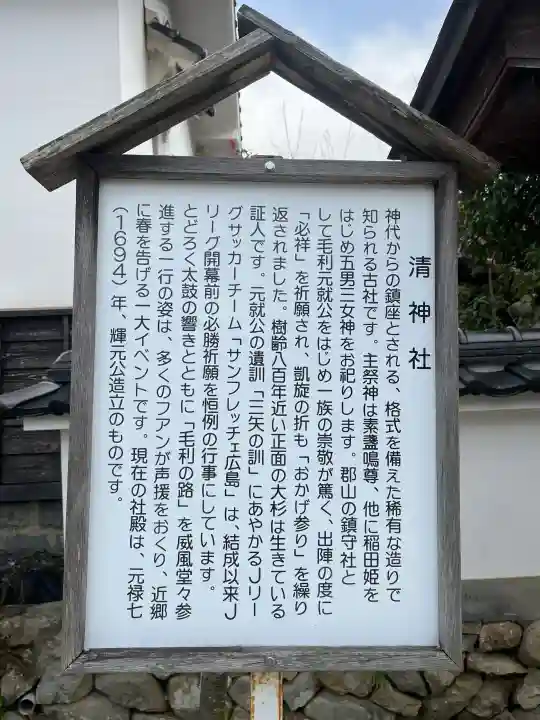 清神社
神代からの鎮座とされる、格式を備えた稀有な造りで
知られる古社です。主祭神は素盞鳴尊、他に稲田姫を
はじめ五男三女神をお祀りします。郡山の鎮守社と
して毛利元就公をはじめ一族の崇敬が篤く、出陣の度に
「必祥」を祈願され、凱旋の折も「おかげ参り」を繰り
返されました。樹齢八百年近い正面の大杉は生きている
証人です。元就公の遺訓「三矢の訓」にあやかるJリー
グサッカーチーム「サンフレッチェ広島」は、結成以来J
リーグ開幕前の必勝祈願を恒例の行事にしています。
とどろく太鼓の響きとともに「毛利の路」を威風堂々参
進する一行の姿は、多くのフアンが声援をおくり、近郷
に春を告げる一大イベントです。現在の社殿は、元禄七
（1694）年、輝元公造立のものです。